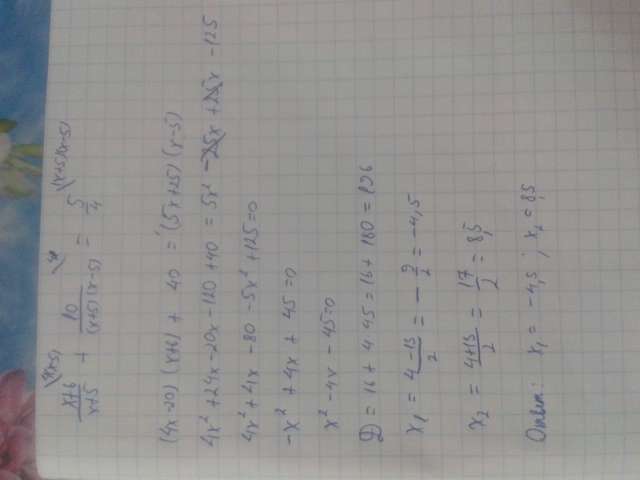 (x+6)/(x+5) \4(x-5) + 10/((x+5)(x-5)) \4 = 5/4 \(x+5)(x-5)
(4x-20)(x+6) + 40 = (5x+25)(x-5)
4x² + 24x - 20x - 120 + 40 = 5x² - 25x + 25x - 125
4x² + 4x - 80 - 5x² + 125 = 0
-x² + 4x + 45 = 0
x² - 4x - 45 = 0
D = 16 + 4·45 = 16 + 180 = 196
x₁ = (4-13)/2 = -9/2 = -4,5
x₂ = (4+13)/2 = 17/2 = 8,5
Ответ: x₁ = -4,5; x₂ = 8,5